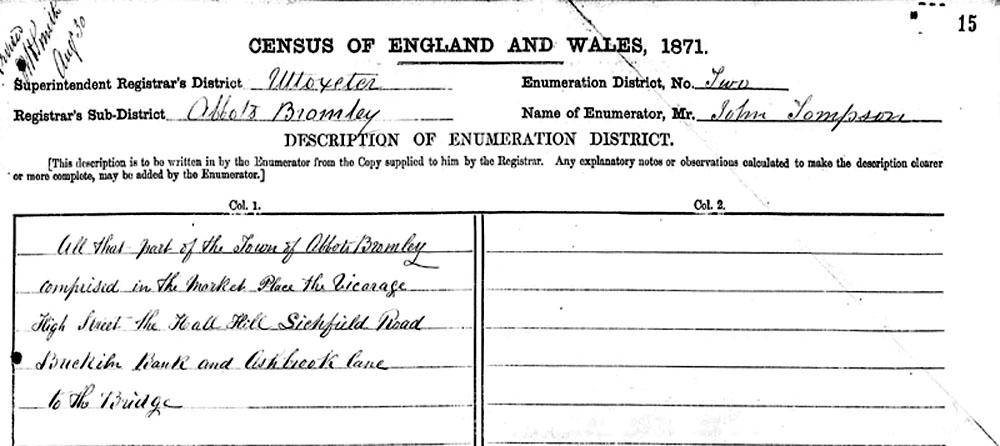 W Smith
Aug 30
15
CENSUS OF ENGLAND AND WALES, 1871.
Superintendent Registrar's District Uttoxeter
Enumeration District, No. Two
Registrar's Sub-District Abbots Bromley
Name of Enumerator, Mr. John Tompson
DESCRIPTION OF ENUMERATION DISTRICT.
[This description is to be written in by the Enumerator from the Copy supplied to him by the Registrar. Any explanatory notes or observations calculated to make the description clearer
or more complete, may be added by the Enumerator.]
Col. 1.
Col. 2.
All that part of the Town of Abbots Bromley
comprised in the Market Place the Vicarage
High Street the Hall Hill Lichfield Road
Buckiln Bank and Ashbrook lane
to the Bridge